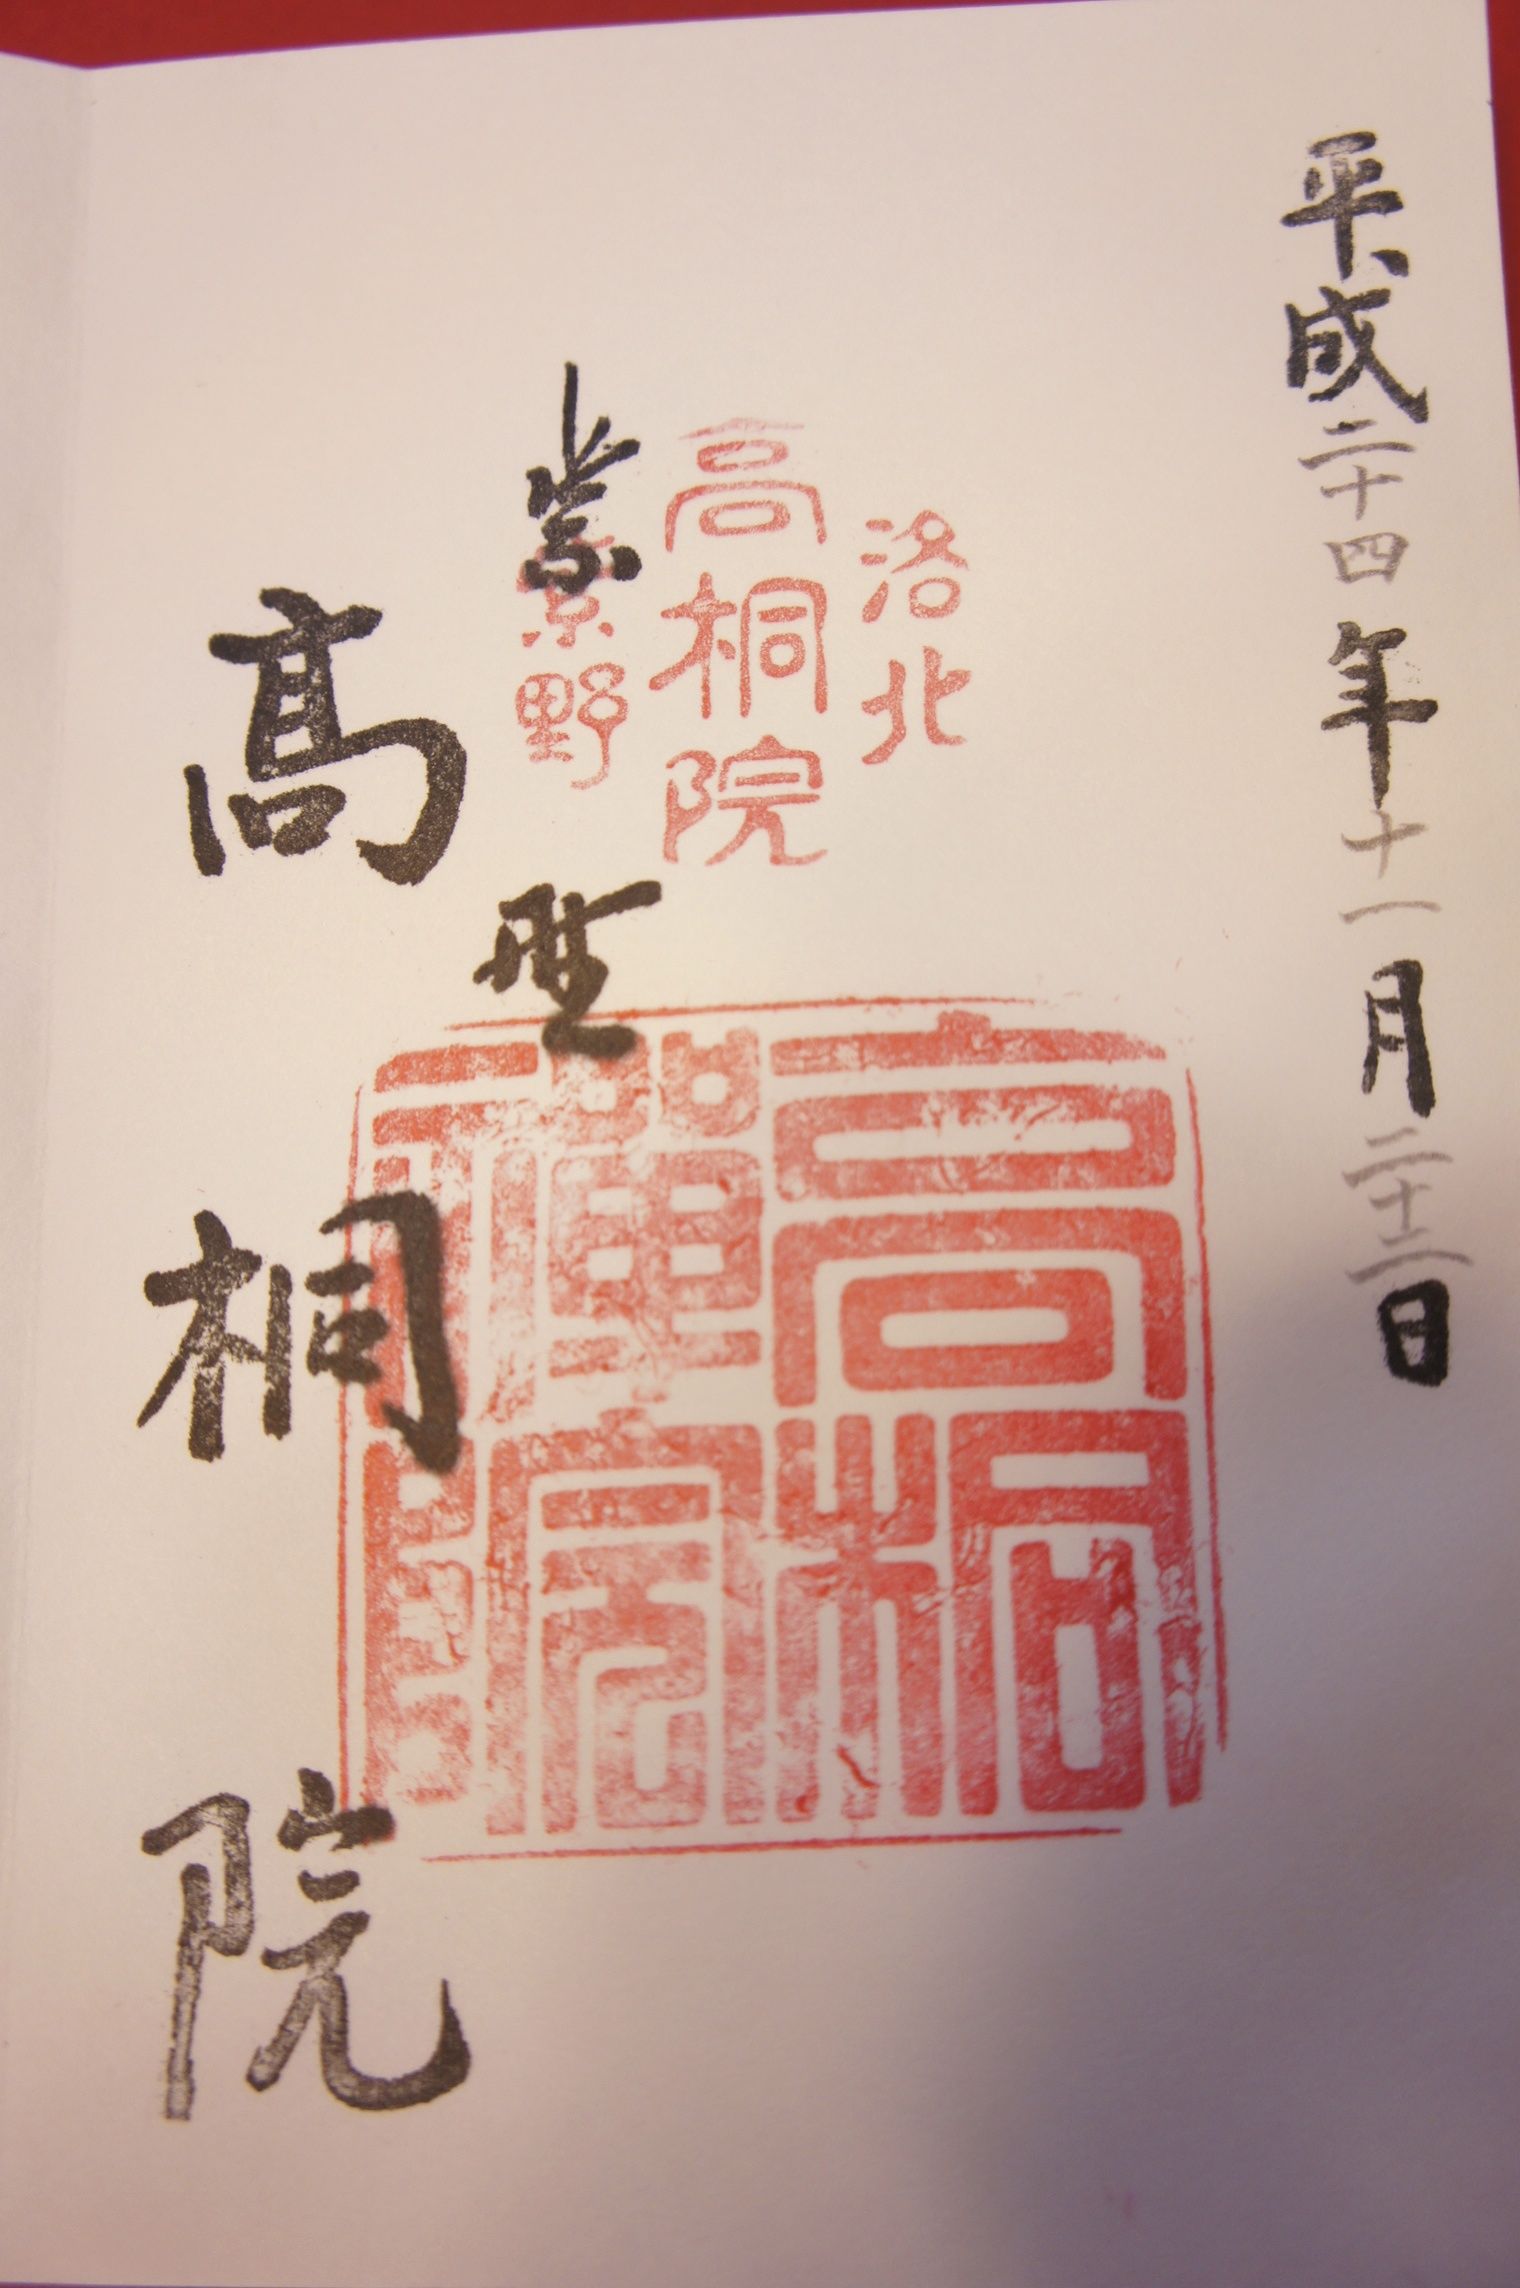 平成二十四年十一月二十三日
洛北
高桐院
紫野
高桐
禪院
紫野
髙桐院